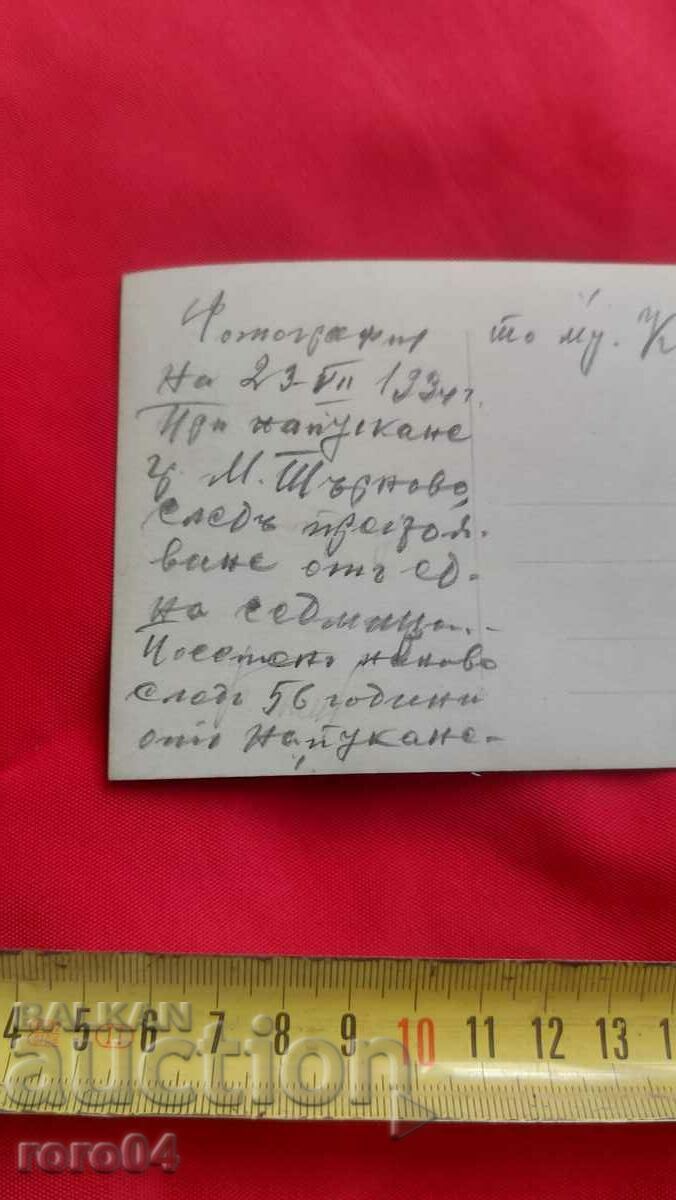 Фотография
на 23-VII 1934 г.
При напускане
гр. М. Търново
следъ престоя-
ване отъ ед-
на седмица.-
Посетенъ наново
следъ 56 години
отъ напукане-
то му. К
4 5 6 7 8 9 10 11 12 13 1
BALKAN
auction
roro04